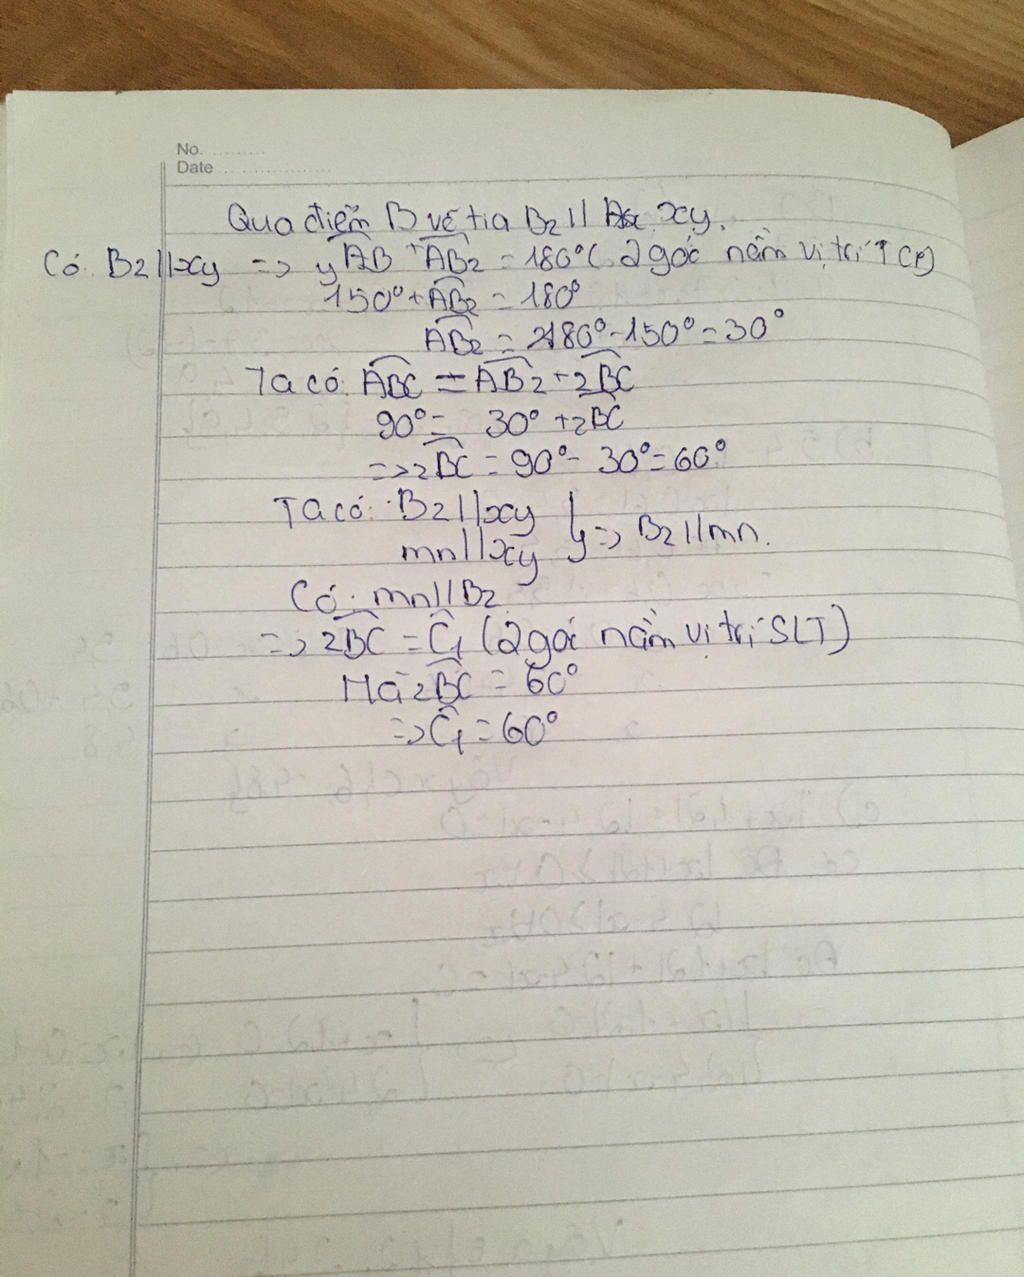 No. ..........
Date ....................
Qua điểm B vẽ tia Bz // xy.
Có Bz//xy => yAB + ABz = 180° (2 góc nằm vị trí TCP)
150° + ABz = 180°
ABz = 180° - 150° = 30°
Ta có: ABC = ABz + zBC
90° = 30° + zBC
=> zBC = 90° - 30° = 60°
Ta có: Bz//xy
mn//xy } => Bz//mn.
Có: mn//Bz
=> zBC = Ĉ₁ (2 góc nằm vị trí SLT)
Mà zBC = 60°
=> Ĉ₁ = 60°